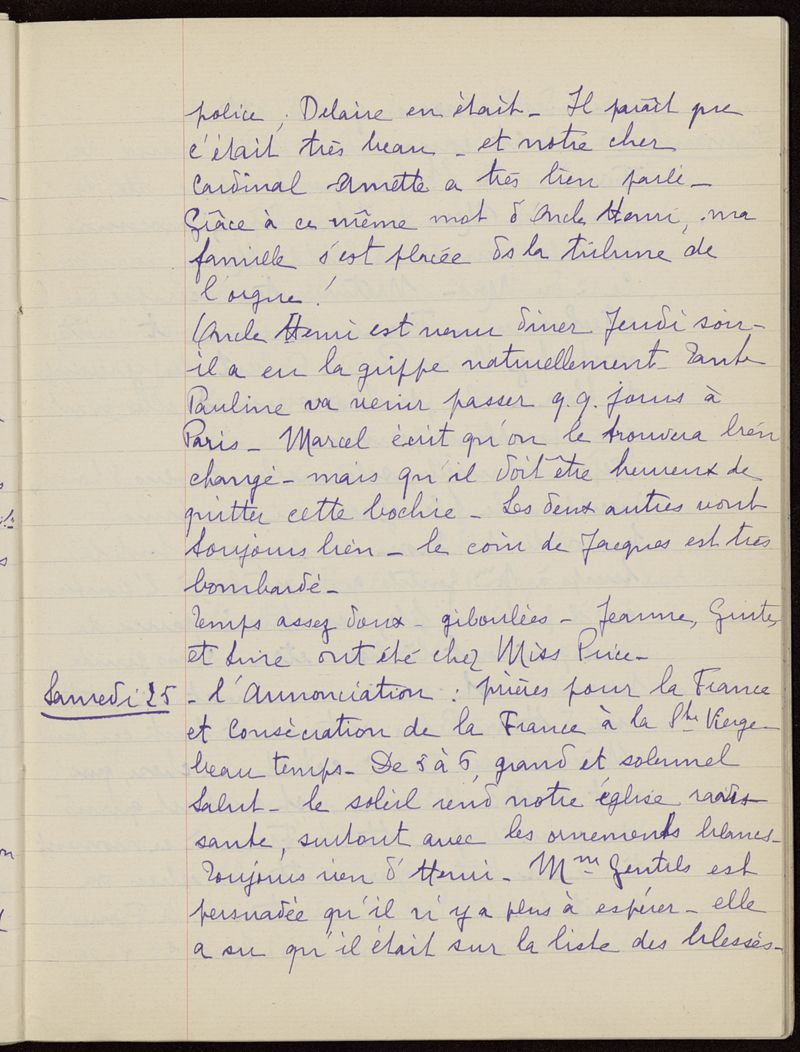 police, Delaire en était - Il paraît que
c'était très beau - et notre cher
Cardinal Amette a très bien parlé -
Grâce à ce même mot d'Oncle Henri, ma
famille s'est placée ds la tribune de
l'orgue !
Oncle Henri est venu diner Jeudi soir -
il a eu la grippe naturellement - Tante
Pauline va venir passer q.q. jours à
Paris - Marcel écrit qu'on le trouvera bien
changé - mais qu'il doit être heureux de
quitter cette bochie - Les deux autres vont
toujours bien - le coin de Jacques est très
bombardé -
Temps assez doux - giboulées - Jeanne,
et ont été chez Miss Price -
Samedi 25 - l'Annonciation : prières pour la France
et Consécration de la France à la Ste Vierge -
beau temps - De à grand et solennel
Salut - le soleil rend notre église ravis-
sante, surtout avec les ornements blancs -
Toujours rien d'Henri - Mme Gentils est
persuadée qu'il n'y a plus à espérer - elle
a su qu'il était sur la liste des blessés -